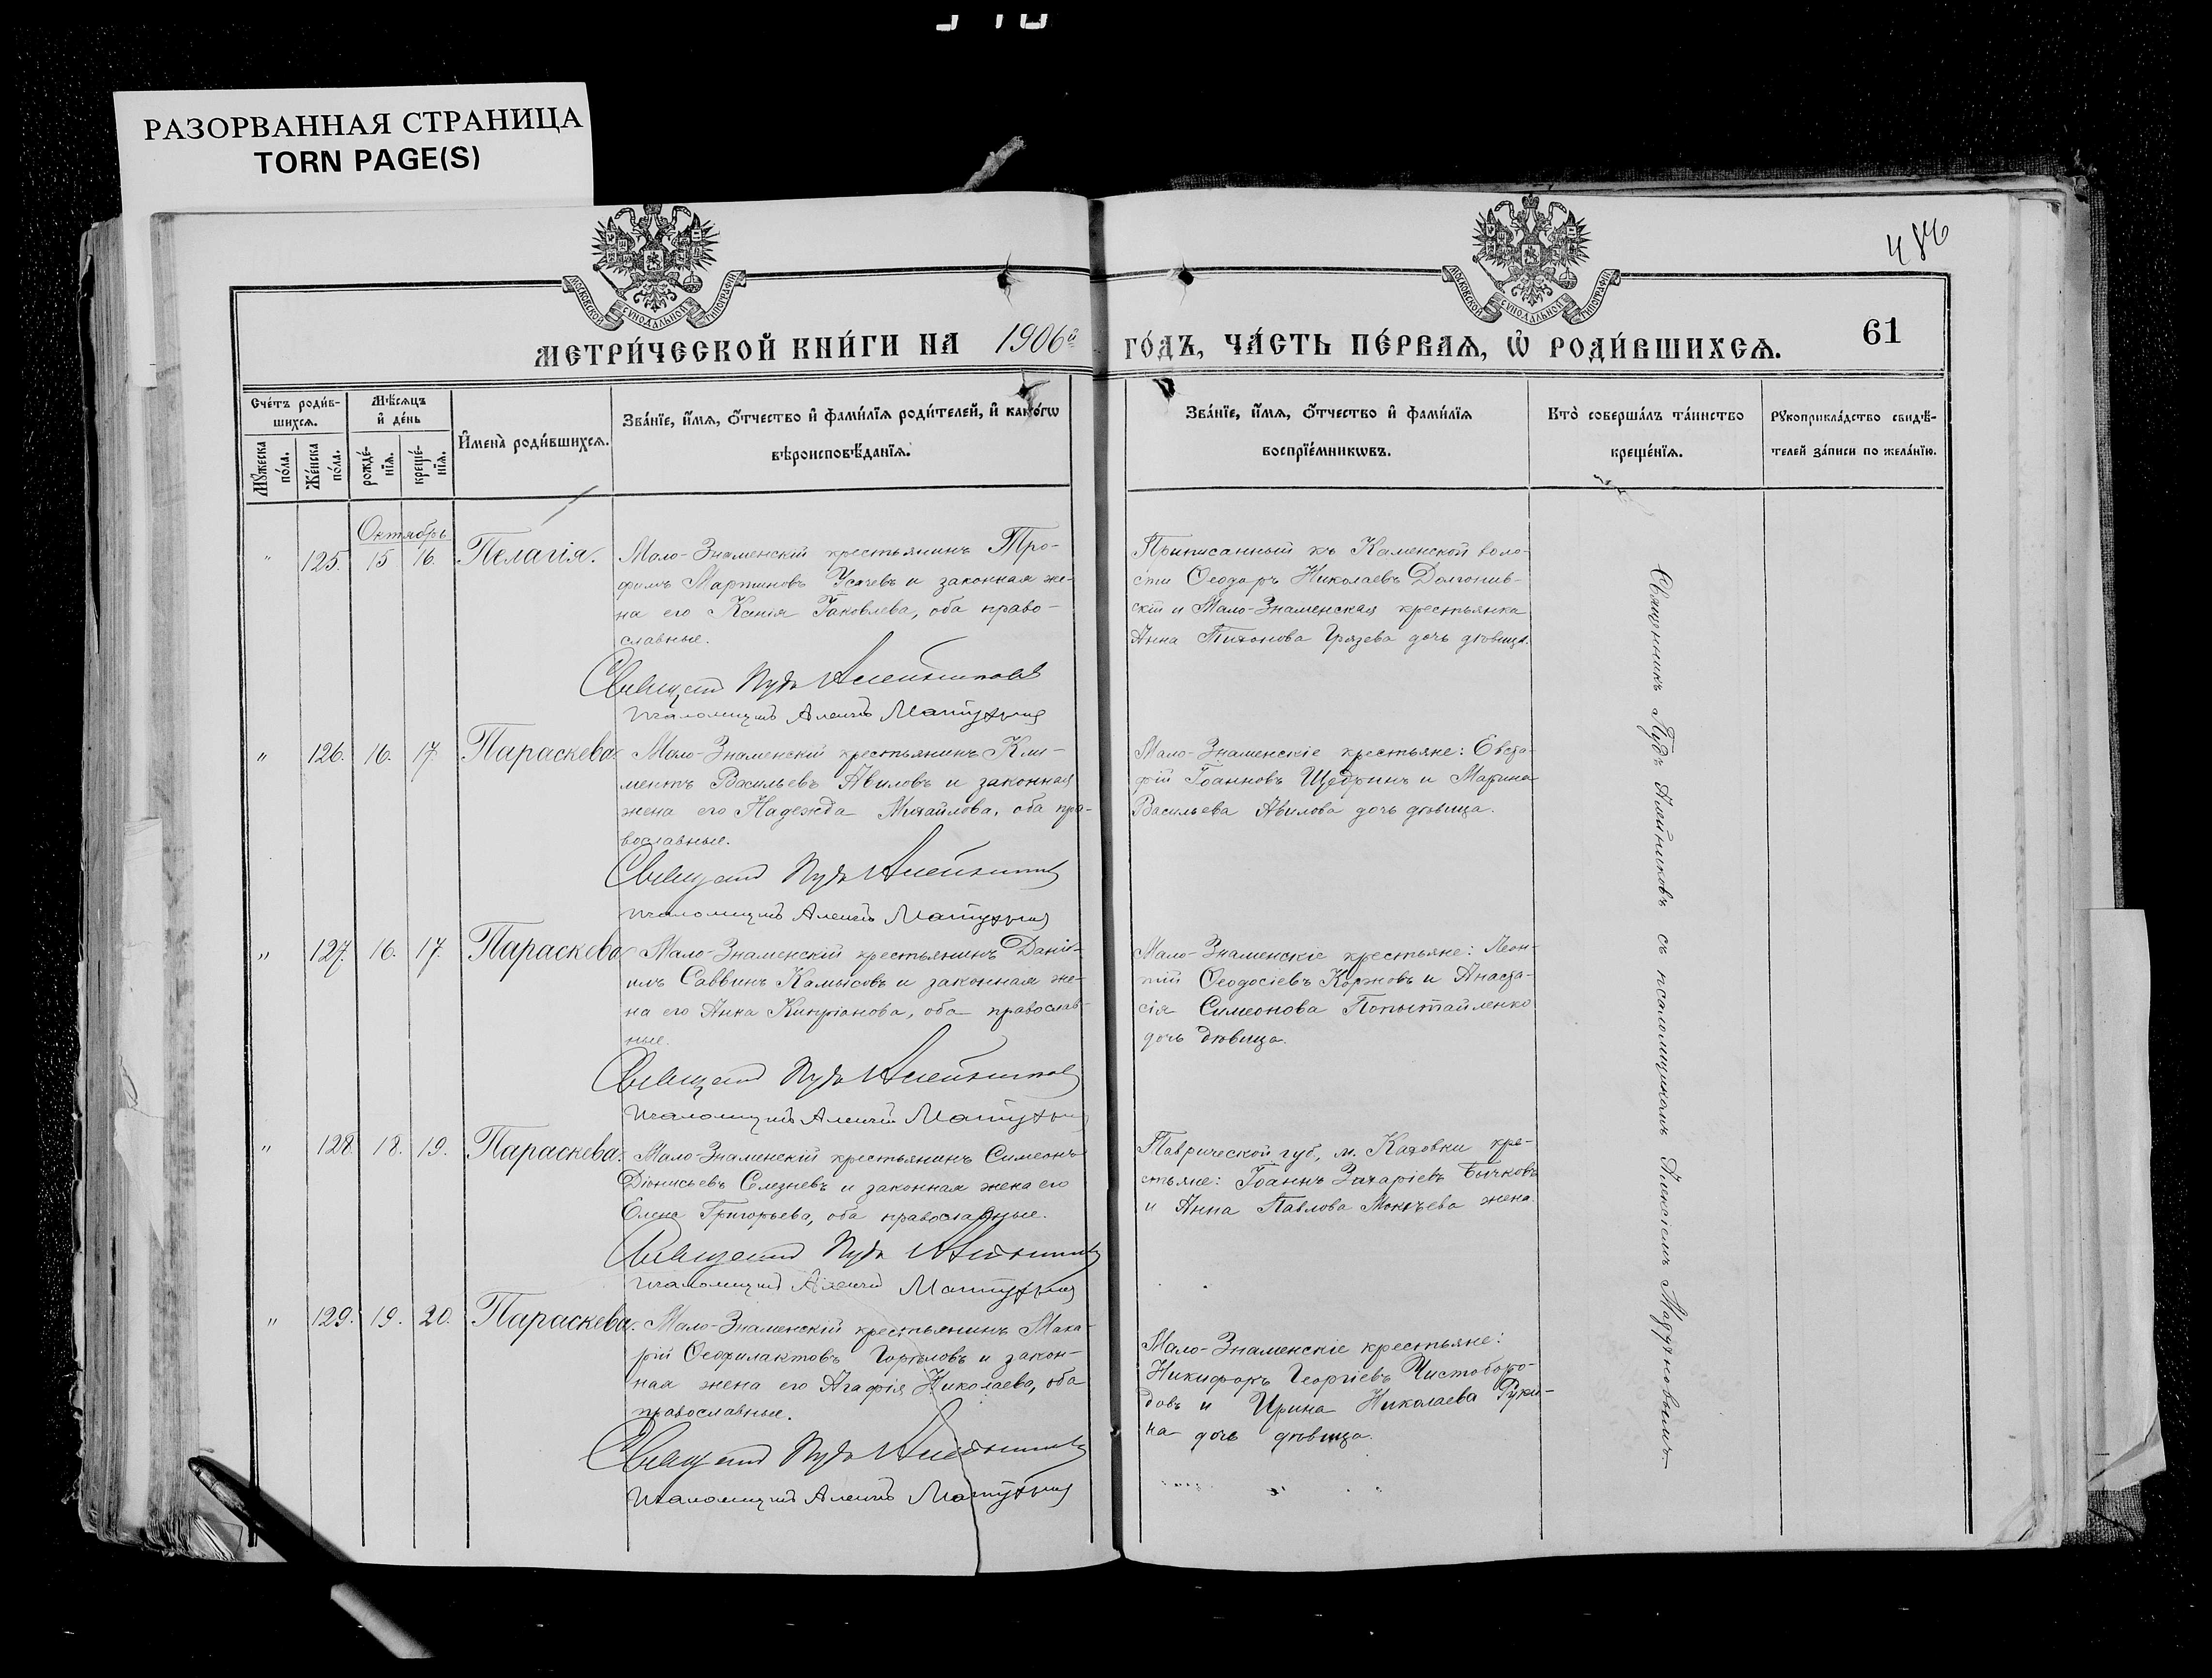 РАЗОРВАННАЯ СТРАНИЦА
TORN PAGE(S)
МОСКОВСКОЙ СѴНОДАЛЬНОЙ ТИПОГРАФІИ
МОСКОВСКОЙ СѴНОДАЛЬНОЙ ТИПОГРАФІИ
486
МЕТРИ́ЧЕСКОЙ КНИ́ГИ НА 1906й ГО́ДЪ, ЧА́СТЬ ПЕ́РВАѦ, Ѡ҆ РОДИ́ВШИХСѦ.
61
Сче́тъ роди́в-
шихсѧ.
Мꙋ́жеска
по́ла.
Же́нска
по́ла.
Мѣ́сѧцъ
и҆ де́нь
рожде́-
нїѧ.
креще́-
нїѧ.
И҆мена̀ роди́вшихсѧ.
Зва́нїе, и҆́мѧ, ѻ҆́тчество и҆ фами́лїѧ роди́телей, и҆ како́гѡ
вѣроисповѣ́данїѧ.
Зва́нїе, и҆́мѧ, ѻ҆́тчество и҆ фами́лїѧ
воспрїе́мникѡвъ.
Кто̀ соверша́лъ та́инство
креще́нїѧ.
Рꙋкоприкла́дство свидѣ́-
телей за́писи по жела́нїю.
Октябрь
" 125. 15 16. Пелагія.
Мало-Знаменскій крестьянинъ Тро-
фимъ Мартиновъ Усачевъ и законная же-
на его Ксенія Іаковлева, оба право-
славные.
Священник Пудъ Алейников
псаломщикъ Алексѣй
Приписанный къ Каменской воло-
сти Ѳеодоръ Николаевъ Долгонив-
скій и Мало-Знаменская крестьянка
Анна Тихонова Грязева дочь дѣвица.
" 126. 16. 17. Параскева.
Мало-Знаменскій крестьянинъ Кли-
ментъ Васильевъ Авиловъ и законная
жена его Надежда Михайлова, оба пра-
вославные.
Священник Пудъ Алейников
псаломщикъ Алексѣй
Мало-Знаменскіе крестьяне: Евста-
фій Іоанновъ Щедринъ и Марина
Васильева Авилова дочь дѣвица.
" 127. 16. 17. Параскева
Мало-Знаменскій крестьянинъ Даніи-
илъ Саввинъ Камысовъ и законная же-
на его Анна Кипріанова, оба православ-
ные.
Священник Пудъ Алейников
псаломщикъ Алексѣй
Мало-Знаменскіе крестьяне: Леон-
тій Ѳеодосіевъ Коржовъ и Анаста-
сія Симеонова Попытайленко
дочь дѣвица.
" 128. 18. 19. Параскева.
Мало-Знаменскій крестьянинъ Симеонъ
Діонисьевъ Селезневъ и законная жена его
Елена Григорьева, оба православные.
Священник Пудъ Алейников
псаломщикъ Алексѣй
Таврической губ., м. Каховки кре-
стьяне: Іоаннъ Захаріевъ Бычковъ
и Анна Павлова жена
" 129. 19. 20. Параскева.
Мало-Знаменскій крестьянинъ Мака-
рій Ѳеофилактовъ Горѣловъ и закон-
ная жена его Агафія Николаева, оба
православные.
Священник Пудъ Алейников
псаломщикъ Алексѣй
Мало-Знаменскіе крестьяне:
Никифоръ Георгіевъ Чистоборо-
довъ и Ирина Николаева Руки-
на дочь дѣвица.
Священникъ Пудъ Алейниковъ съ псаломщикомъ Алексіемъ